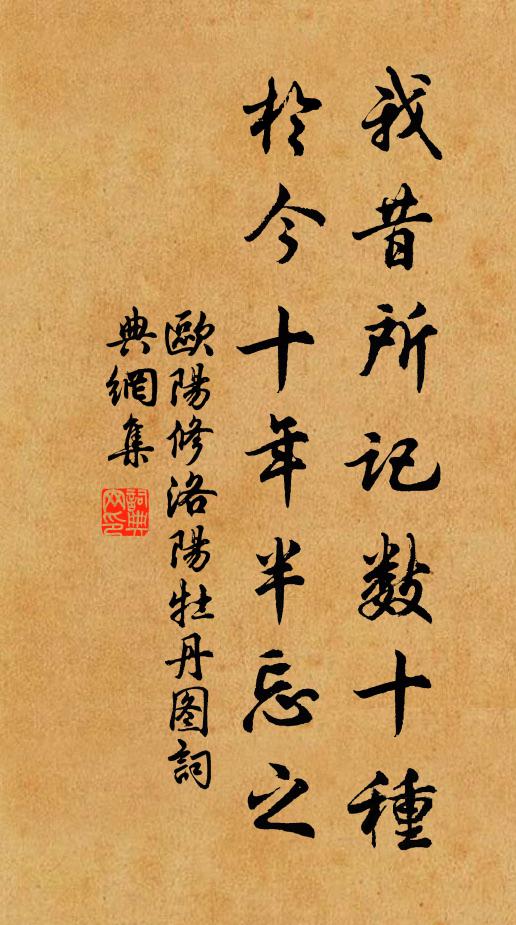 我昔所记数十種
於今十年半忘之
歐陽修洛陽牡丹图詞
典網集
詞典网印